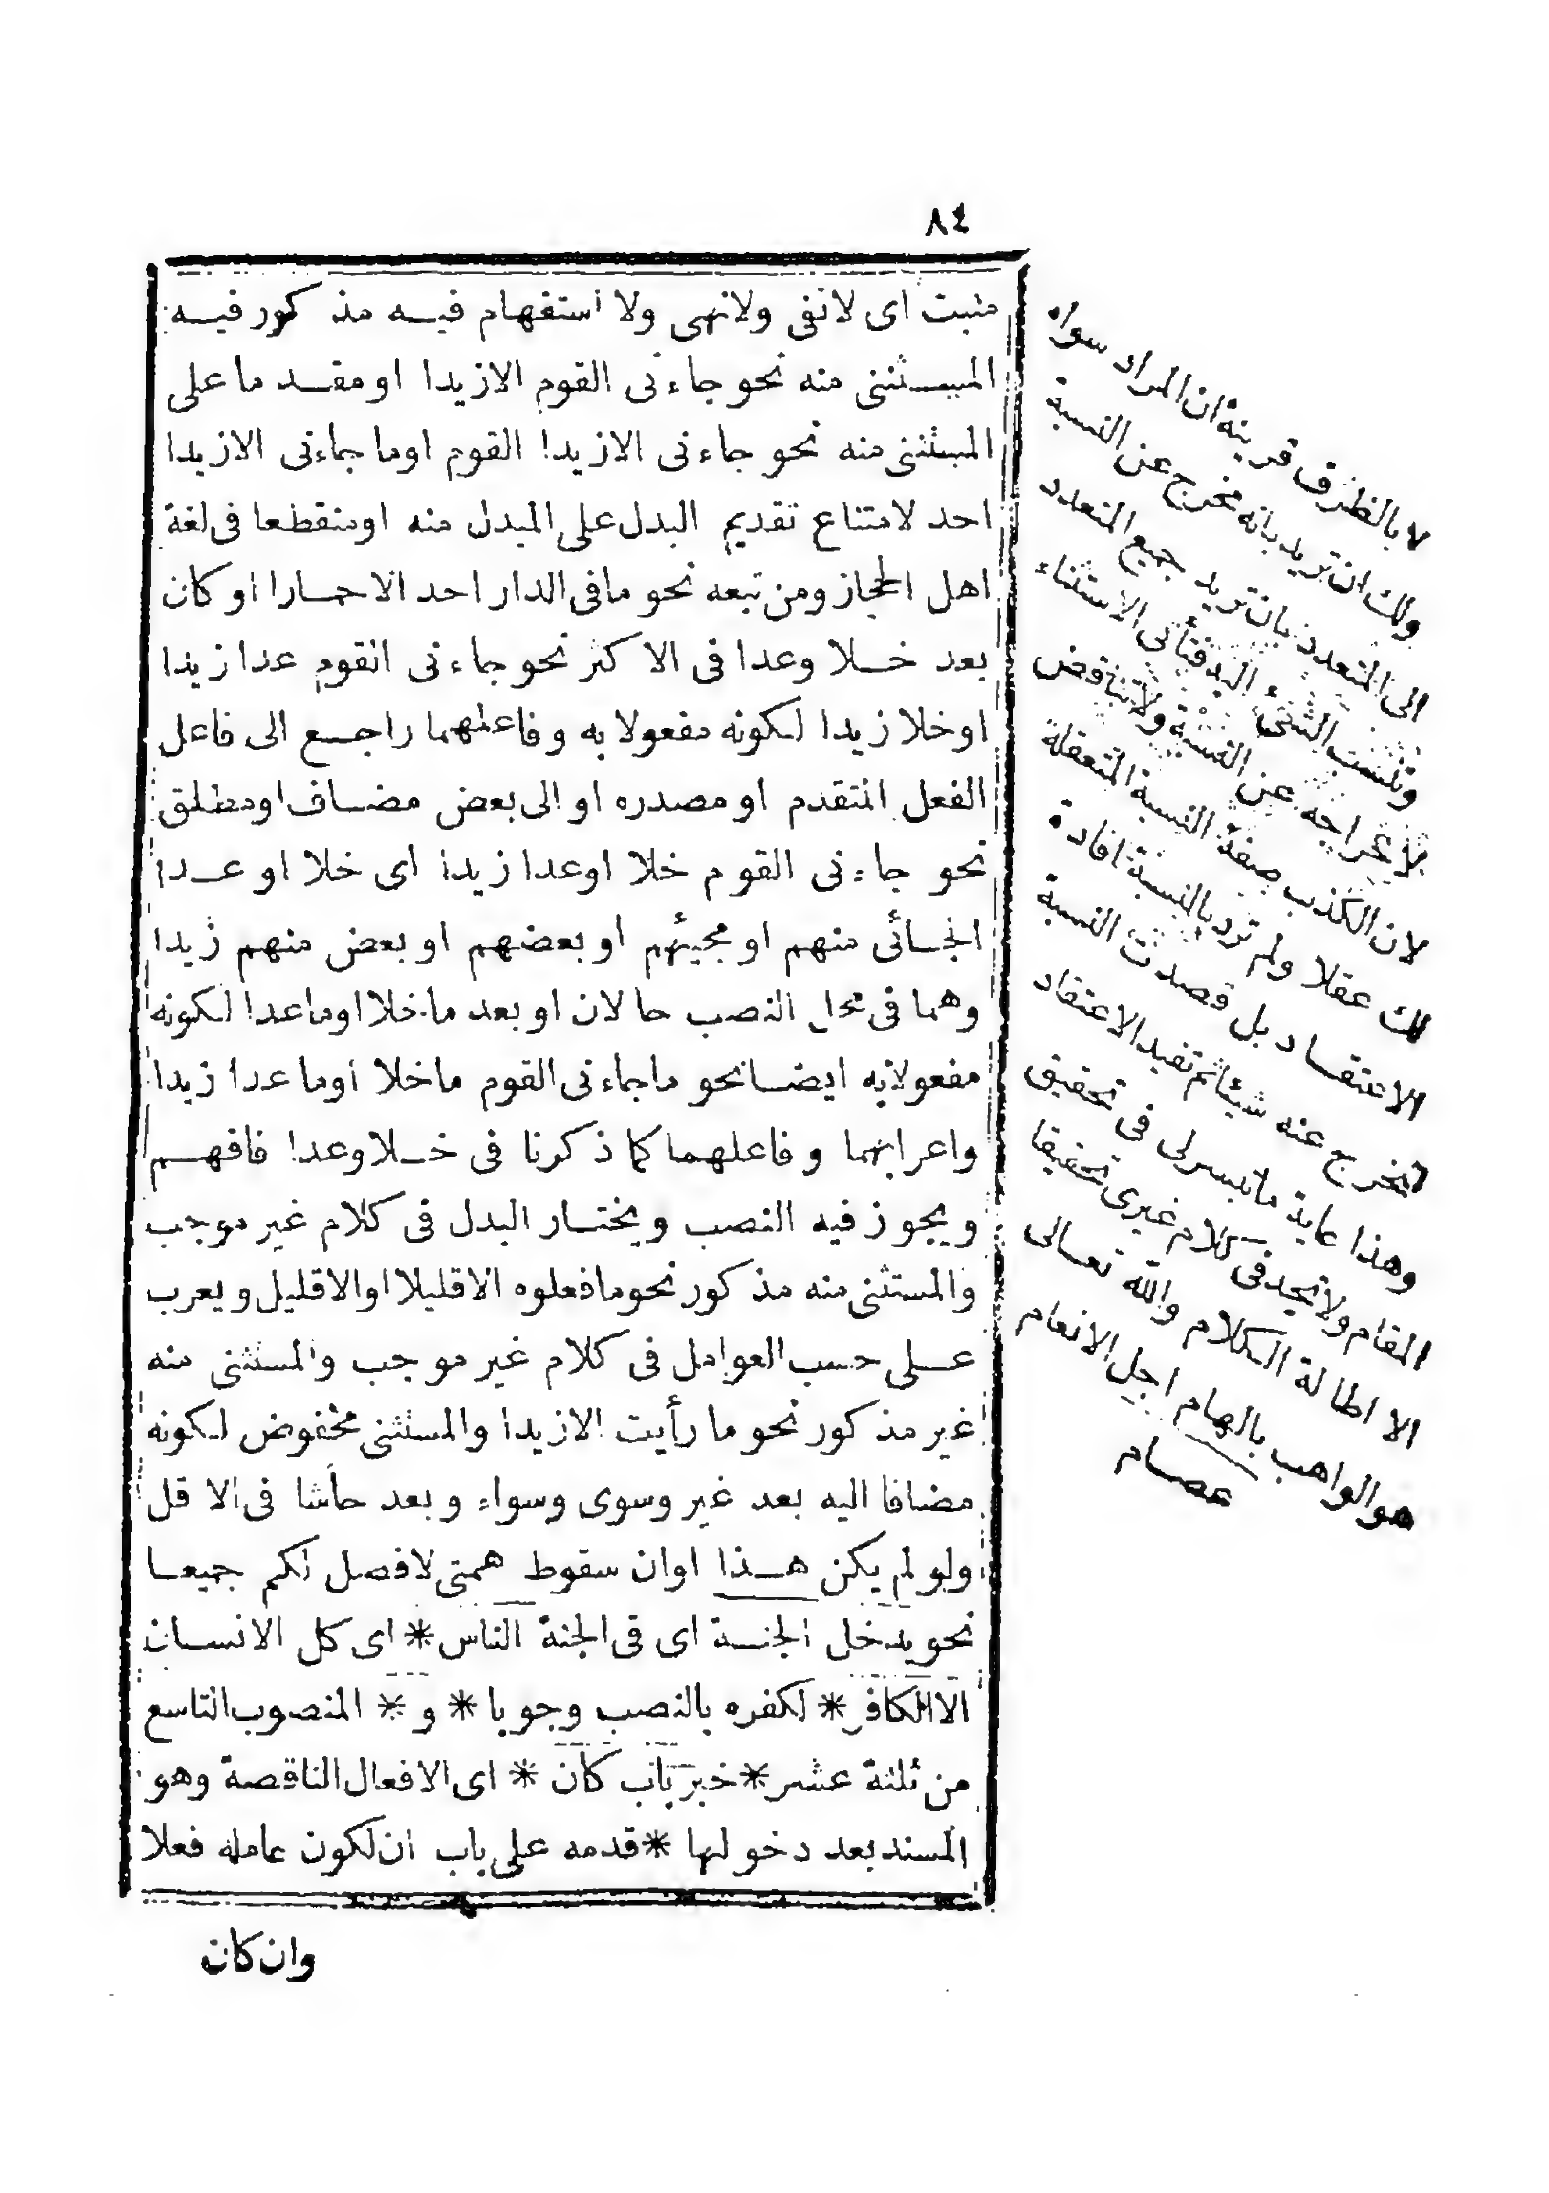 ٨٤
مثبت اى لانفى ولانهى ولا استفهام فيه مذكور فيه
المستثنى منه نحو جاءنى القوم الازيدا او مقدما على
المستثنى منه نحو جاءنى الازيدا القوم اوما جاءنى الازيدا
احد لامتناع تقديم البدل على المبدل منه او منقطعا فى لغة
اهل الحجاز ومن تبعه نحو مافى الدار احد الاحمارا او كان
بعد خلا وعدا فى الاكثر نحو جاءنى القوم عدا زيدا
اوخلا زيدا لكونه مفعولا به وفاعلهما راجع الى فاعل
الفعل المتقدم او مصدره او الى بعض مضاف او مطلق
نحو جاءنى القوم خلا اوعدا زيدا اى خلا او عدا
الجائى منهم او مجيئهم او بعضهم او بعض منهم زيدا
وهما فى محل النصب حالان او بعد ماخلا اوماعدا لكونه
مفعولابه ايضا نحو ماجاءنى القوم ماخلا اوما عدا زيدا
واعرابهما وفاعلهما كما ذكرنا فى خلا وعدا فافهم
ويجوز فيه النصب ويختار البدل فى كلام غير موجب
والمستثنى منه مذكور نحو مافعلوه الاقليلا او الاقليل ويعرب
على حسب العوامل فى كلام غير موجب والمستثنى منه
غير مذكور نحو ما رأيت الازيدا والمستثنى مخفوض لكونه
مضافا اليه بعد غير وسوى وسواء وبعد حاشا فى الاقل
ولو لم يكن هذا اوان سقوط همتى لافصل لكم جميعا
نحو يدخل الجنة اى فى الجنة الناس * اى كل الانسان
الا الكافر * لكفره بالنصب وجوبا * و * المنصوب التاسع
من ثلثة عشر * خبر باب كان * اى الافعال الناقصة وهو
المسند بعد دخولها * قدمه على باب ان لكون عامله فعلا
وان كان
لا بالظرف قرينة ان المراد سواه
ولك ان تريد بانه مخرج عن النسبة
الى المتعدد بان تريد جميع المتعدد
وتنسب الشىء اليه فتأتى الاستثناء
لاخراجه عن النسبة ولاتناقض
لان الكذب صفة النسبة المتعقلة
لك عقلا ولم ترد بالنسبة افادة
الاعتقاد بل قصدت النسبة
لتخرج عنه شيئا ثم تفيد الاعتقاد
وهذا غاية ماتيسرلى فى تحقيق
المقام ولاتجد فى كلام غيرى تحقيقا
الا اطالة الكلام والله تعالى
هو الواهب بالهام اجل الانعام
عصام